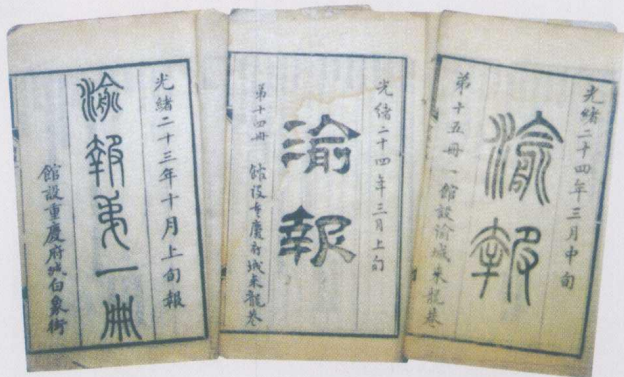 光緒二十三年十月上旬報
渝報第一冊
館設重慶府城白象街
光緒二十四年三月上旬
渝報
第十四冊 館設重慶府城來龍巷
光緒二十四年三月中旬
渝報
第十五冊 館設渝城來龍巷